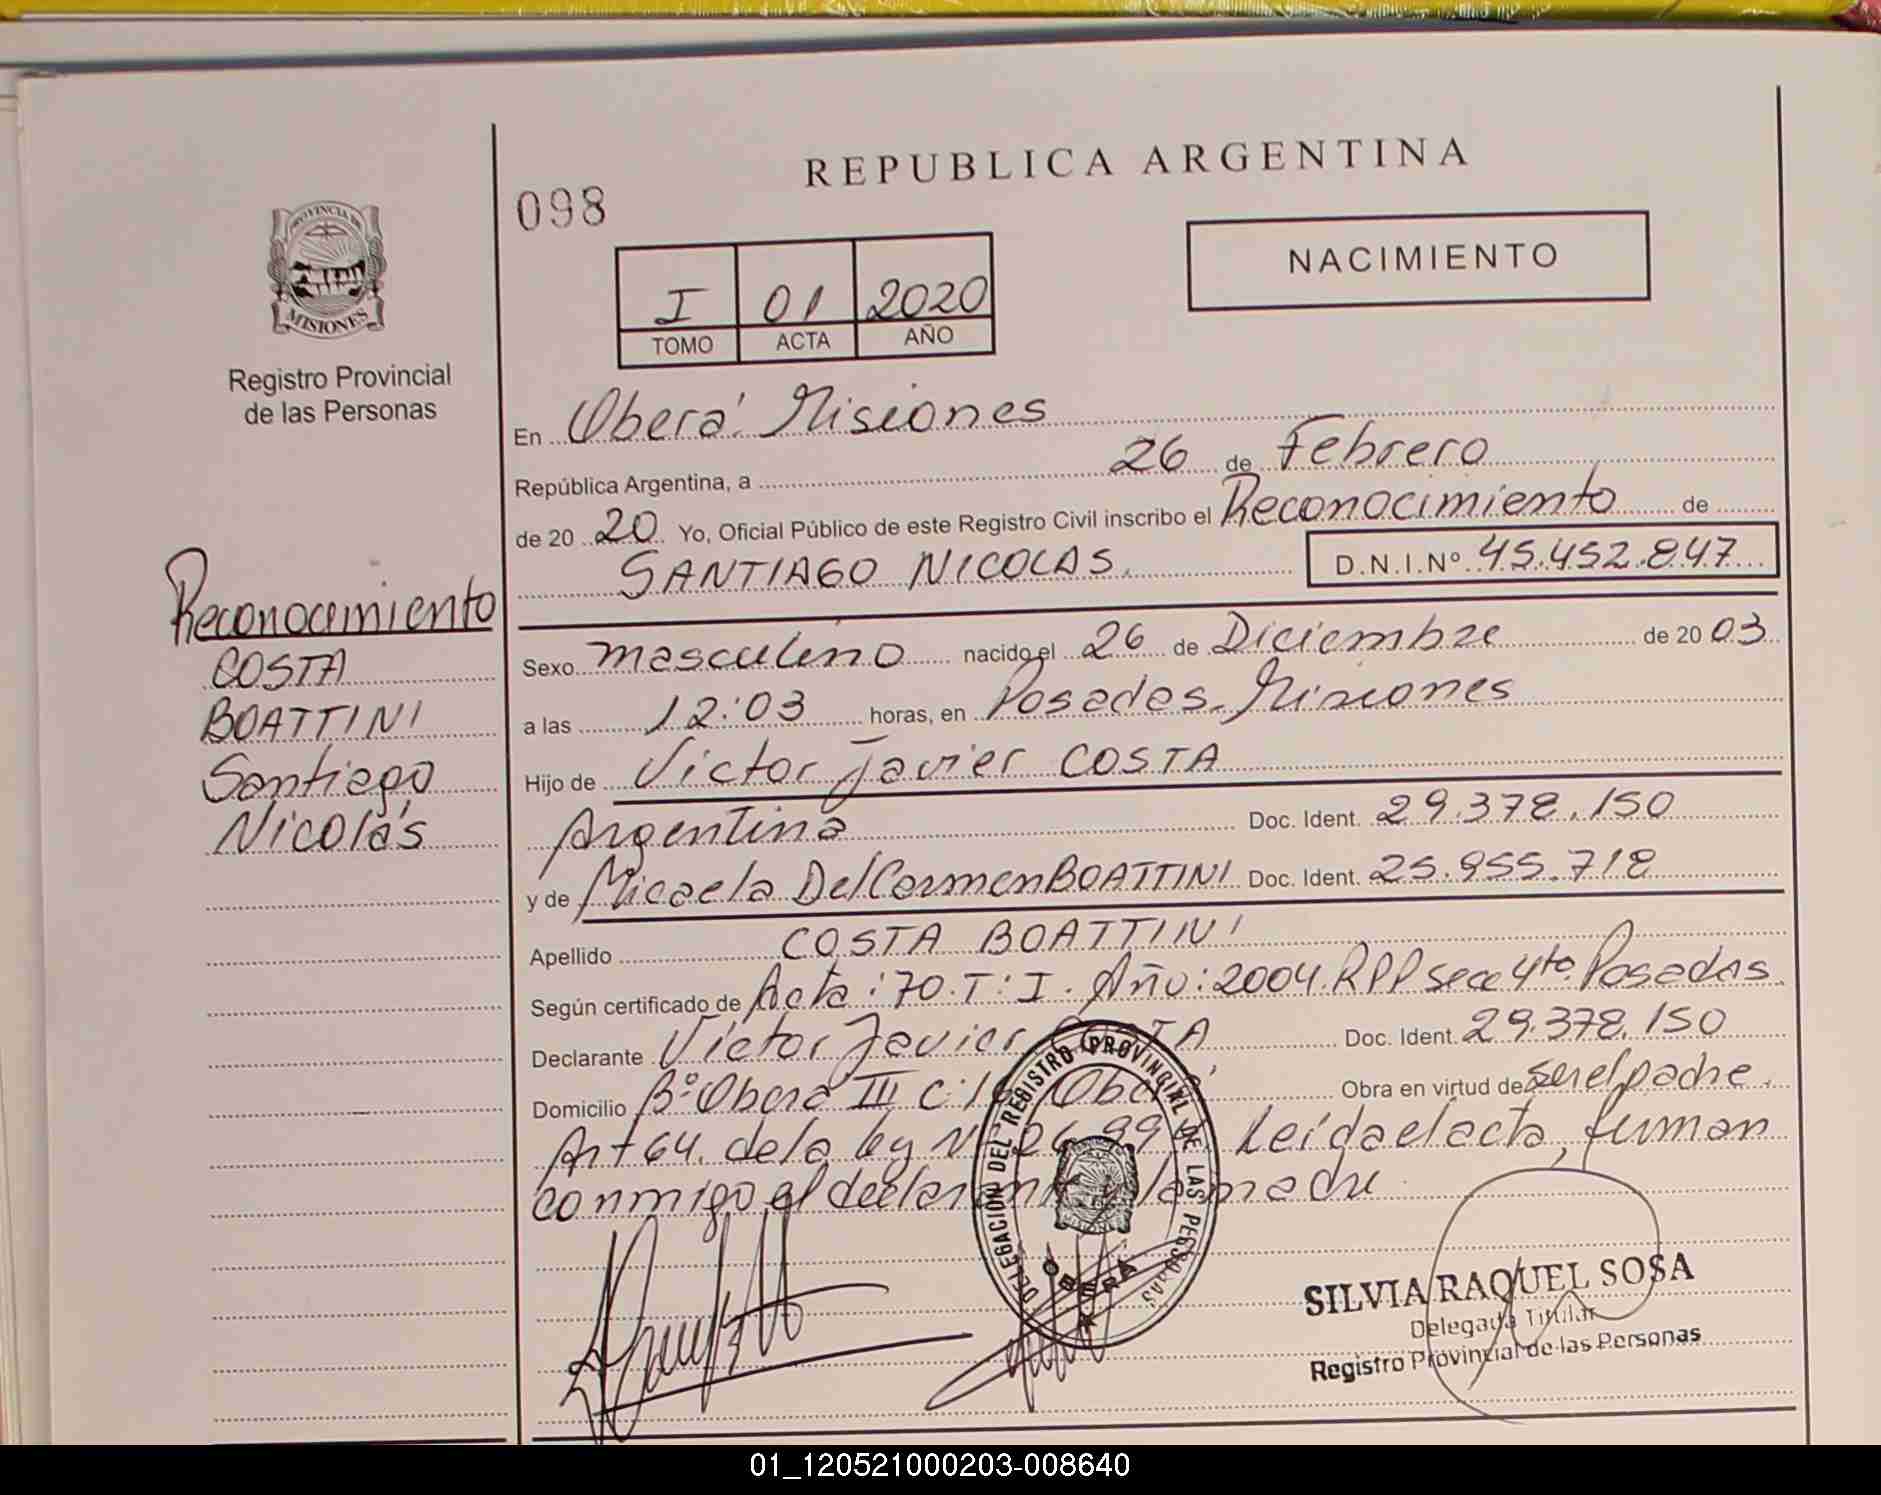 REPUBLICA ARGENTINA
098
NACIMIENTO
I 01 2020
TOMO ACTA AÑO
PROVINCIA DE
MISIONES
Registro Provincial
de las Personas
En Oberá. Misiones
República Argentina, a 26 de Febrero
de 20 20 Yo, Oficial Público de este Registro Civil inscribo el Reconocimiento de
SANTIAGO NICOLAS. D.N.I.Nº 45.452.847
Reconocimiento
COSTA
BOATTINI
Santiago
Nicolás
Sexo masculino nacido el 26 de Diciembre de 20 03
a las 12:03 horas, en Posadas. Misiones
Hijo de Victor Javier COSTA
Argentina Doc. Ident. 29.378.150
y de Micaela Del Carmen BOATTINI Doc. Ident. 25.955.718
Apellido COSTA BOATTINI
Según certificado de Acta: 70. T: I. Año: 2004. RPP secc 4to. Posadas.
Declarante Victor Javier COSTA Doc. Ident. 29.378.150
Domicilio Bº Oberá III C: Oberá Obra en virtud de ser el padre.
Art 64. de la ley Nº Leída el acta, firman
conmigo el declarante y la madre.
DELEGACION DEL REGISTRO PROVINCIAL DE LAS PERSONAS
MISIONES
OBERA
SILVIA RAQUEL SOSA
Delegada Titular
Registro Provincial de las Personas
01_120521000203-008640